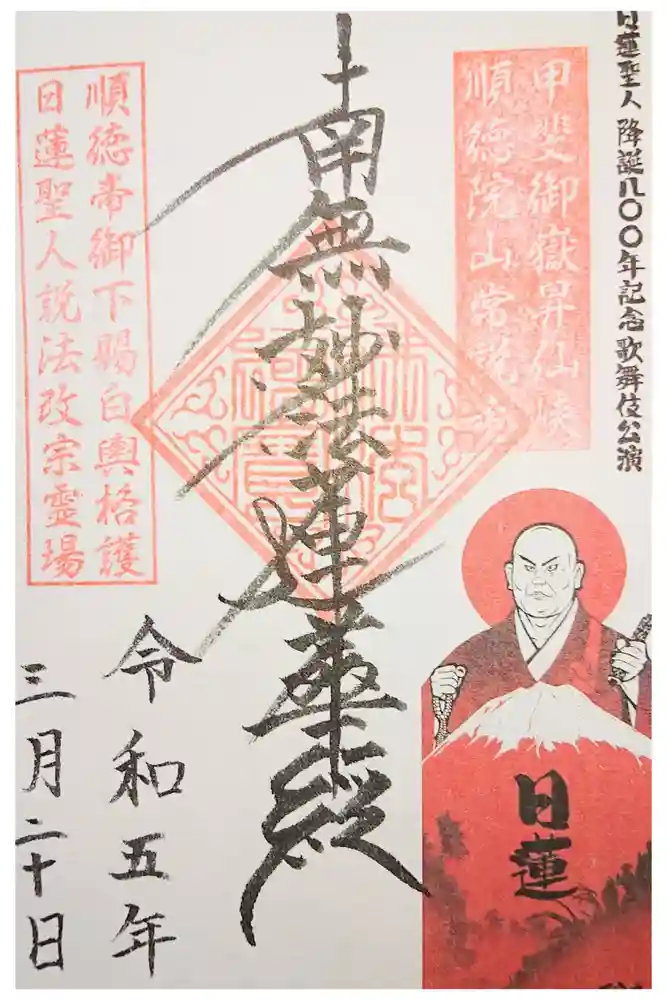 日蓮聖人 降誕八〇〇年記念歌舞伎公演
甲斐御嶽昇仙峡
順徳院山常説寺
南無妙法蓮華経
順徳帝御下賜白輿格護
日蓮聖人説法改宗霊場
令和五年
三月二十日
日蓮